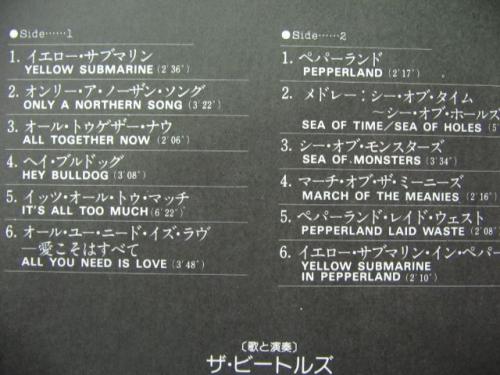 ●Side……1
1. イエロー・サブマリン
YELLOW SUBMARINE (2'36")
2. オンリー・ア・ノーザン・ソング
ONLY A NORTHERN SONG (3'22")
3. オール・トゥゲザー・ナウ
ALL TOGETHER NOW (2'06")
4. ヘイ・ブルドッグ
HEY BULLDOG (3'08")
5. イッツ・オール・トゥ・マッチ
IT'S ALL TOO MUCH (6'22")
6. オール・ユー・ニード・イズ・ラヴ
―愛こそはすべて
ALL YOU NEED IS LOVE (3'48")
●Side……2
1. ペパーランド
PEPPERLAND (2'17")
2. メドレー：シー・オブ・タイム
～シー・オブ・ホールズ
SEA OF TIME/SEA OF HOLES (5'
3. シー・オブ・モンスターズ
SEA OF MONSTERS (3'34")
4. マーチ・オブ・ザ・ミーニーズ
MARCH OF THE MEANIES (2'16")
5. ペパーランド・レイド・ウェスト
PEPPERLAND LAID WASTE (2'08"
6. イエロー・サブマリン・イン・ペパー
YELLOW SUBMARINE
IN PEPPERLAND (2'10")
〔歌と演奏〕
ザ・ビートルズ